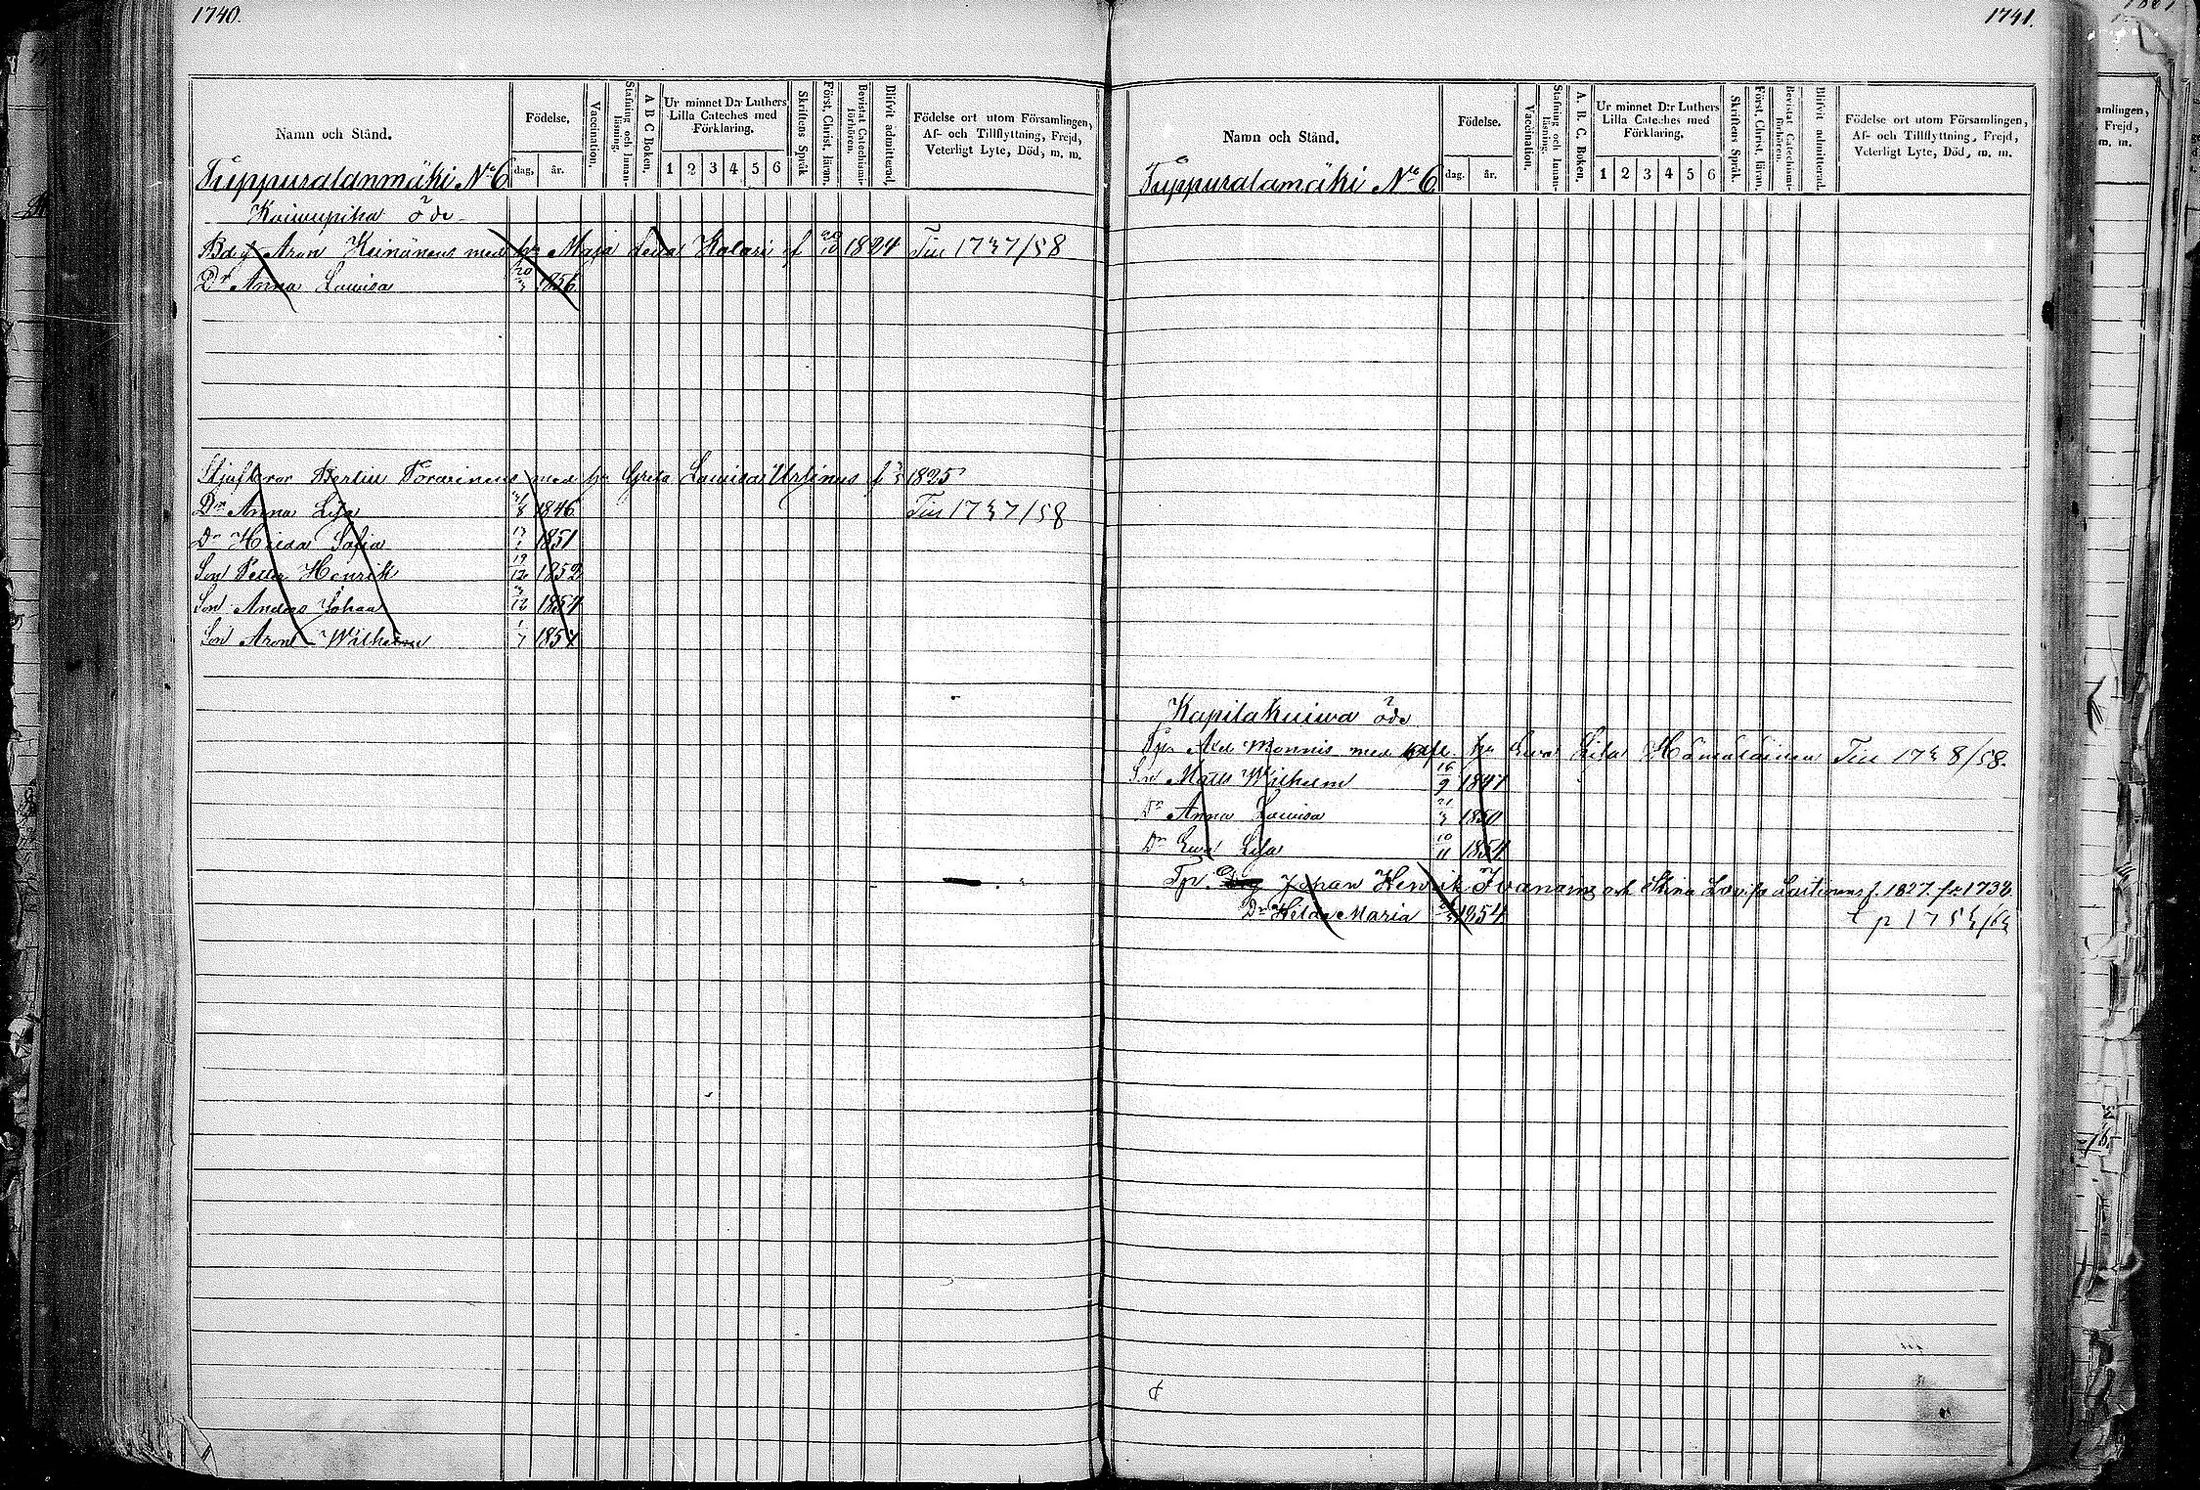 1740.
Namn och Stånd.
Födelse,
dag, år.
Vaccination.
Stafning och Innan-läsning.
A B C Boken.
Ur minnet D:r Luthers Lilla Cateches med Förklaring.
1 2 3 4 5 6
Skriftens Språk
Först. Christ. läran.
Bevistat Catechismi-förhören.
Blifvit admitterad,
Födelse ort utom Församlingen, Af- och Tillflyttning, Frejd, Veterligt Lyte, Död, m. m.
Tuppuralanmäki No 6
Koivupiha öde
Aron Keinänens med hu Maja Lena f 1824 Tiu 1737/58
Dr Anna Lovisa 20/3 1856
med hu Greta Lovisa Ursinus f 1825
Dr Anna Lisa 1846 Tiu 1737/58
Dr Hilda Sofia 1851
Son Petter Henrik 19/12 1852
Son Anders Johan 1854
Son Aron Wilhelm 1/7
1741.
Namn och Stånd.
Födelse.
dag. år.
Vaccination.
Stafning och Innan-läsning.
A. B. C. Boken.
Ur minnet D:r Luthers Lilla Cateches med Förklaring.
1 2 3 4 5 6
Skriftens Språk.
Först. Christ. läran.
Bevistat Catechismi-förhören.
Blifvit admitterad.
Födelse ort utom Församlingen, Af- och Tillflyttning, Frejd, Veterligt Lyte, Död, m. m.
Tuppuralamäki No 6
öde
med hu Ewa Lisa Hämäläinen Tiu 1738/58.
Sn Matts Wilhelm 16/9 1847
Dr Anna Lovisa 21/3 1850
Dr Ewa Lisa 10/11 1854
Tp. Johan Henrik och Stina Lovisa f. 1827. fr 1738
Dr Hilda Maria 1854